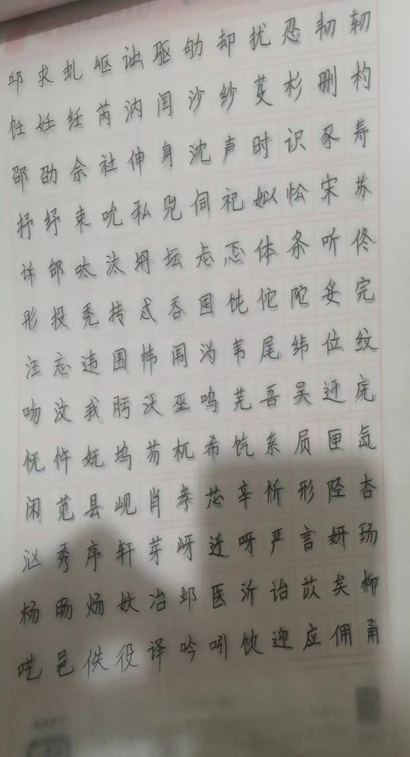 邱 求 虬 岖 诎 驱 劬 却 扰 忍 韧 轫
饪 妊 纴 芮 汭 闰 沙 纱 芟 杉 删 杓
邵 劭 佘 社 伸 身 沈 声 时 识 豕 寿
抒 纾 束 吮 私 兕 伺 祀 姒 忪 宋 苏
诉 邰 呔 汰 坍 坛 忐 忑 体 条 听 佟
彤 投 秃 抟 忒 吞 囤 饨 佗 陀 妥 完
汪 忘 违 围 帏 闱 沩 韦 尾 纬 位 纹
吻 汶 我 肟 沃 巫 呜 芜 吾 吴 迕 庑
怃 忤 妩 坞 芴 杌 希 饩 系 匣 氙
闲 苋 县 岘 肖 孝 芯 辛 忻 形 陉 杏
汹 秀 序 轩 芽 岈 迓 呀 严 言 妍 玚
杨 旸 炀 妖 冶 邺 医 沂 诒 苡 矣
呓 邑 佚 役 译 吟 吲 饮 迎 应 佣 甬